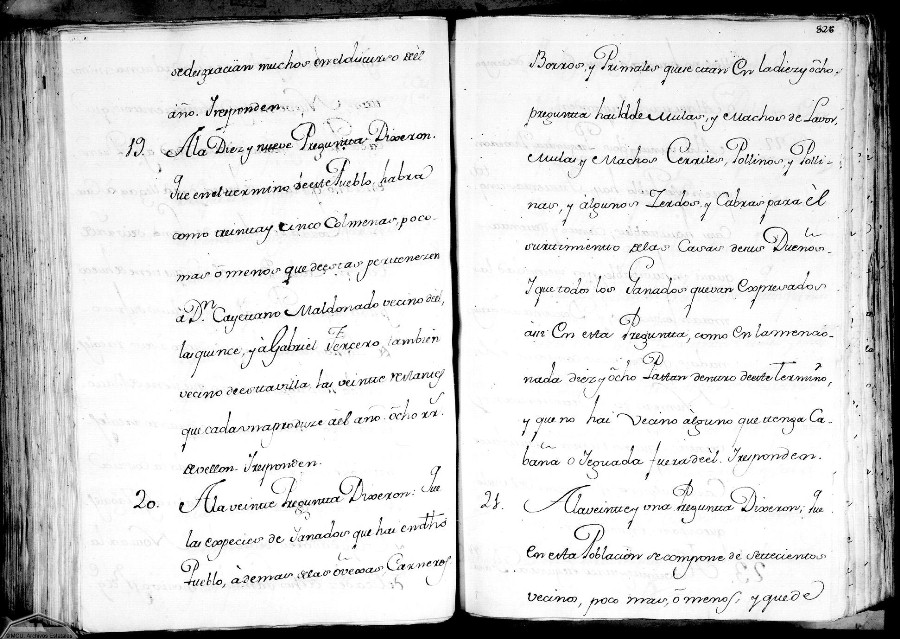 se desgracian muchos en el discurso del
año. Y responden.
19. A la Diez y nueve Pregunta Dixeron.
Que en el termino de este Pueblo, habra
como treinta y cinco Colmenas, poco
mas ò menos que de estas pertenezen
à Dn Cayetano Maldonado vecino de el,
las quince, y à Gabriel Tercero, tambien
vecino de esta villa, las veinte restantes
que cada una produze àel año. ôcho rrs
de vellon. Y responden.
20. A la veinte Pregunta Dixeron: Que
las especies de Ganados que hai en dho
Pueblo, à demas de las òvexas Carneros
328
Borros, y Primales que se citan en la diez y ôcho
pregunta hai de Mulas, y Machos de Lavor,
Mulas y Machos Cerriles, Pollinos, y Polli-
nas, y algunos Zerdos, y Cabras para èl
surtimiento de las Casas de sus Dueños.
Y que todos los Ganados que van expresados
asi En esta Pregunta, como En la mencio-
nada diez y ôcho Pastan dentro de este Termino,
y que no hai vecino àlguno que tenga Ca-
baña o Yeguada fuera de èl. Y responden.
21. A la veinte y una Pregunta Dixeron; Que
En esta Poblacion se compone de settecientos
vecinos, poco mas, ò menos; y que de
©MCU. Archivos Estatales